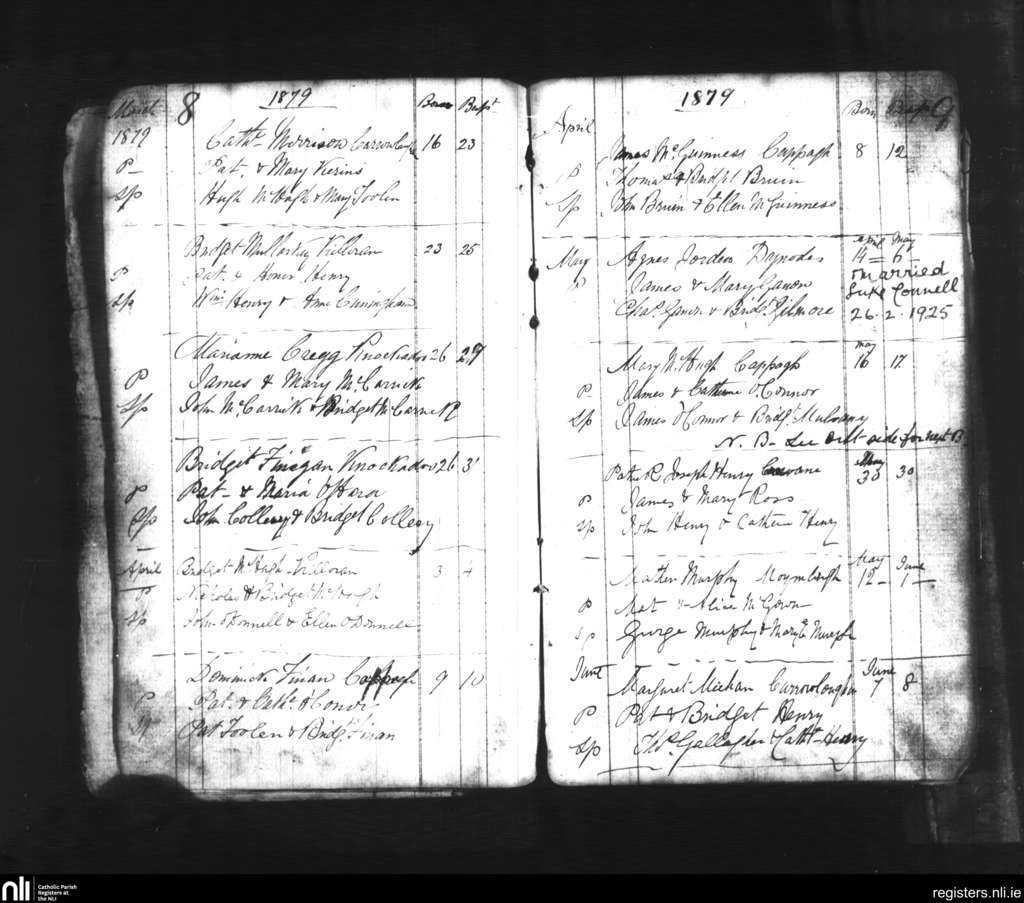 March 8 1879 Born Bapt
1879 Cath. Morrison 16 23
P Pat. & Mary
Sp Hugh McHugh & Mary Toolen
Bridget Mullarky Killoran 23 25
P Pat & Honor Henry
Sp Wm Henry & Anne Cuningham
Marianne Cregg Knockadoo 26 29
P James & Mary McCarrick
Sp John McCarrick & Bridget McCarrick
Bridget Finegan Knockadoo 26 31
P Pat & Maria O'Hara
Sp John Collery & Bridget Collery
April Bridget McHugh Killoran 3 4
P Nicolas & Bridget McHugh
Sp John O'Donnell & Ellen O'Donnell
Dominick Finan Cappagh 9 10
P Pat. & Cath. O'Connor
Sp Pat Toolen & Bridgt. Finan
1879 Born Bapt 9
April
James McGuinness Cappagh 8 12
P Thomas & Bridget Bruin
Sp John Bruin & Ellen McGuinness
April May
May Agnes Jordan 14 = 6
P James & Mary Gawon
married Luke Connell
Chas. & Bridgt. Gilmore 26.2.1925
May
Mary McHugh Cappagh 16 17
P James & Catherine O'Connor
Sp James O'Connor & Bridgt.
N. B. See side for next B.
May
Patrick Joseph Henry 30 30
P James & Mary Ross
Sp John Henry & Catherine Henry
May June
Mathew Murphy 12 1
P Mat & Alice McGowan
Sp George Murphy & Mary Murphy
June June
Margaret Meehan 7 8
P Pat & Bridget Henry
Sp Ths. Gallagher & Cath. Henry
nli Catholic Parish
Registers at
the NLI
registers.nli.ie